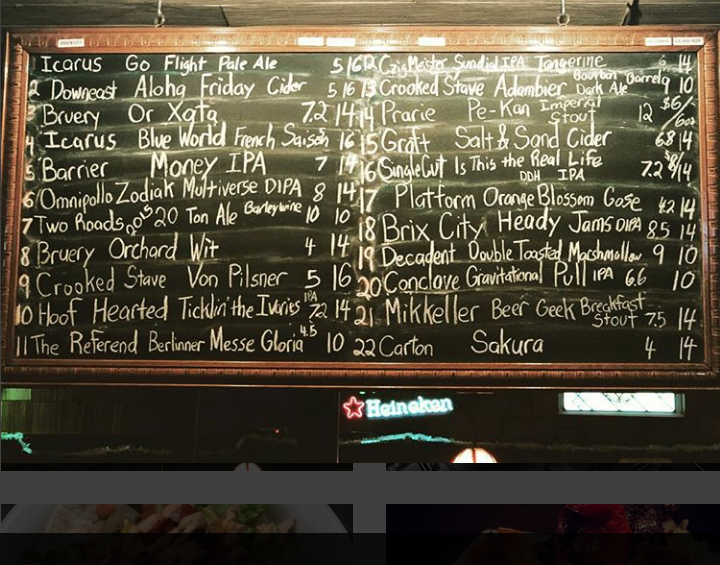 Icarus Go Flight Pale Ale 5 16
2 Downeast Aloha Friday Cider 5 16
3 Bruery Or Xata 7.2 14
4 Icarus Blue World French Saison 16
5 Barrier Money IPA 7 14
6 Omnipollo Zodiak Multiverse DIPA 8 14
7 Two Roads 2015 20 Ton Ale Barleywine 10 10
8 Bruery Orchard Wit 4 14
9 Crooked Stave Von Pilsner 5 16
10 Hoof Hearted Ticklin' the Ivories IPA 7.2 14
11 The Referend Berlinner Messe Gloria 4.5 10
12 Sundial IPA Tangerine 14
13 Crooked Stave Adambier Bourbon Barrel Dark Ale 9 10
14 Prarie Pe-Kan Imperial Stout 12 $6/6oz
15 Graft Salt & Sand Cider 6.8 14
16 SingleCut Is This the Real Life DDH IPA 7.2 $8/14
17 Platform Orange Blossom Gose 4.2 14
18 Brix City Heady Jams DIPA 8.5 14
19 Decadent Double Toasted Marshmallow 9 10
20 Conclave Gravitational Pull IPA 6.6 10
21 Mikkeller Beer Geek Breakfast Stout 7.5 14
22 Carton Sakura 4 14
Heineken